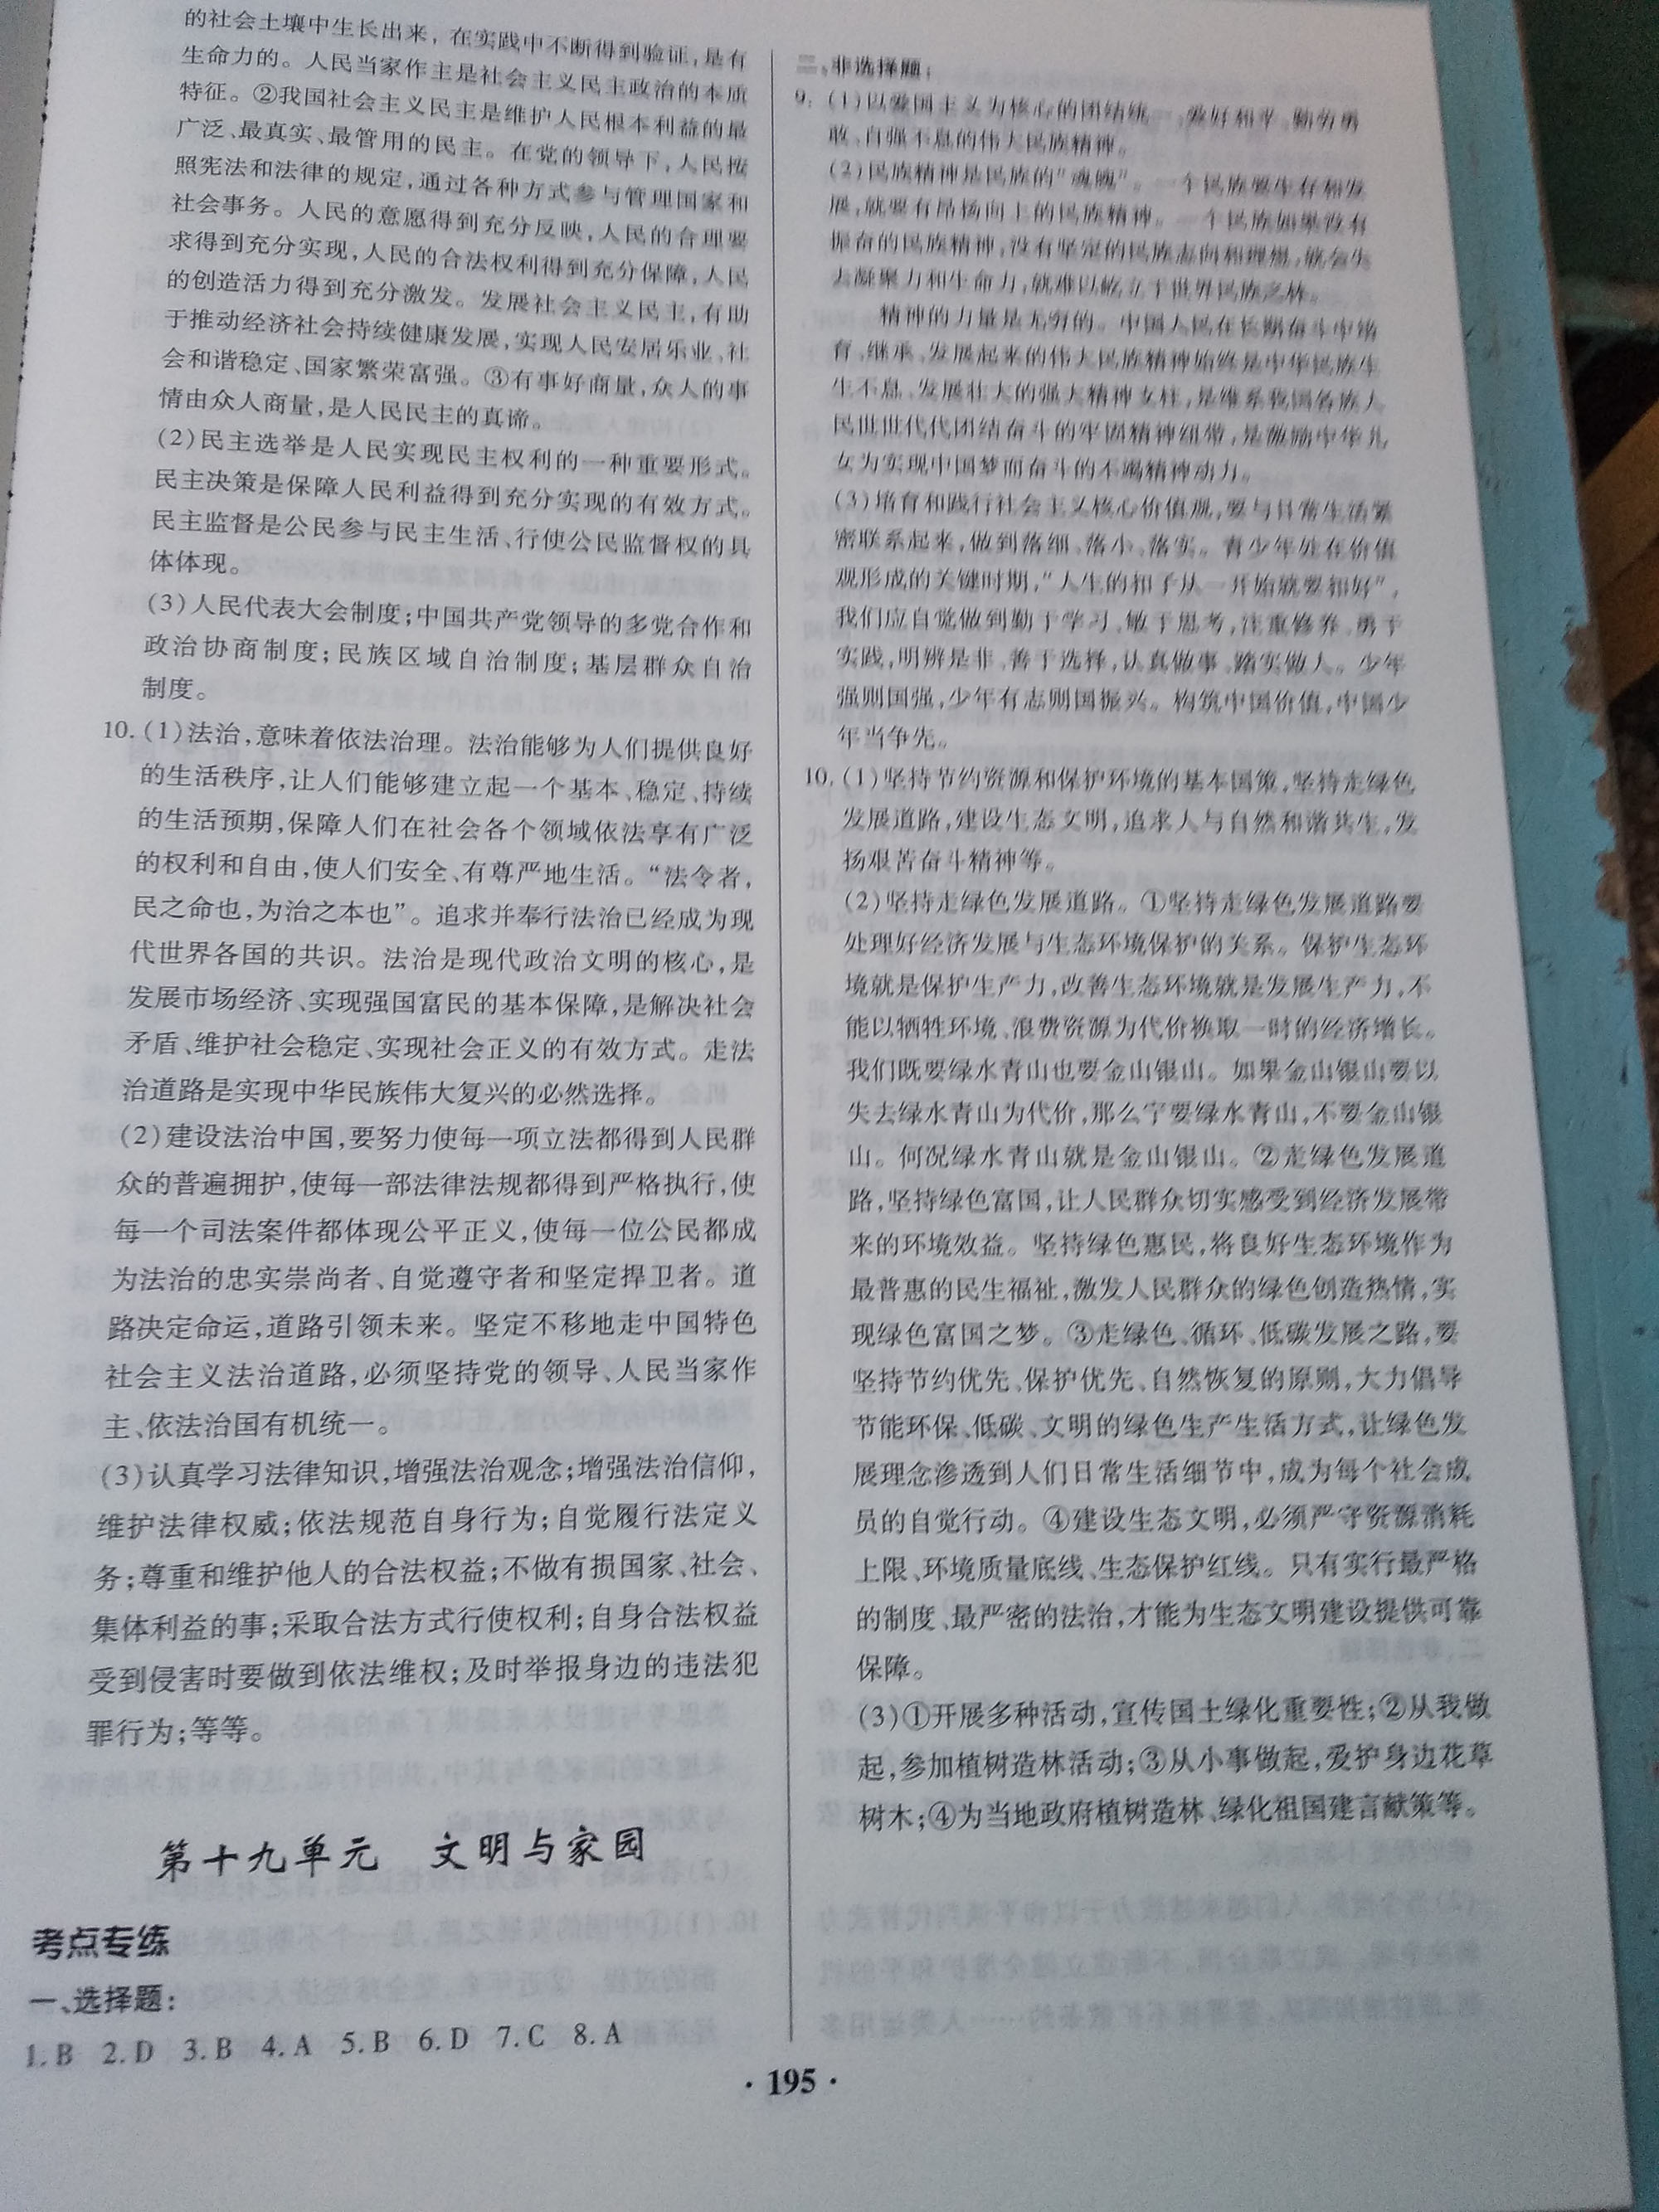 的社会土壤中生长出来,在实践中不断得到验证,是有
生命力的。人民当家作主是社会主义民主政治的本质
特征。②我国社会主义民主是维护人民根本利益的最
广泛、最真实、最管用的民主。在党的领导下,人民按
照宪法和法律的规定,通过各种方式参与管理国家和
社会事务。人民的意愿得到充分反映,人民的合理要
求得到充分实现,人民的合法权利得到充分保障,人民
的创造活力得到充分激发。发展社会主义民主,有助
于推动经济社会持续健康发展,实现人民安居乐业、社
会和谐稳定、国家繁荣富强。③有事好商量,众人的事
情由众人商量,是人民民主的真谛。
(2)民主选举是人民实现民主权利的一种重要形式。
民主决策是保障人民利益得到充分实现的有效方式。
民主监督是公民参与民主生活、行使公民监督权的具
体体现。
(3)人民代表大会制度;中国共产党领导的多党合作和
政治协商制度;民族区域自治制度;基层群众自治
制度。
10.(1)法治,意味着依法治理。法治能够为人们提供良好
的生活秩序,让人们能够建立起一个基本、稳定、持续
的生活预期,保障人们在社会各个领域依法享有广泛
的权利和自由,使人们安全、有尊严地生活。“法令者,
民之命也,为治之本也”。追求并奉行法治已经成为现
代世界各国的共识。法治是现代政治文明的核心,是
发展市场经济、实现强国富民的基本保障,是解决社会
矛盾、维护社会稳定、实现社会正义的有效方式。走法
治道路是实现中华民族伟大复兴的必然选择。
(2)建设法治中国,要努力使每一项立法都得到人民群
众的普遍拥护,使每一部法律法规都得到严格执行,使
每一个司法案件都体现公平正义,使每一位公民都成
为法治的忠实崇尚者、自觉遵守者和坚定捍卫者。道
路决定命运,道路引领未来。坚定不移地走中国特色
社会主义法治道路,必须坚持党的领导、人民当家作
主、依法治国有机统一。
(3)认真学习法律知识,增强法治观念;增强法治信仰,
维护法律权威;依法规范自身行为;自觉履行法定义
务;尊重和维护他人的合法权益;不做有损国家、社会、
集体利益的事;采取合法方式行使权利;自身合法权益
受到侵害时要做到依法维权;及时举报身边的违法犯
罪行为;等等。
第十九单元 文明与家园
考点专练
一、选择题:
1.B 2.D 3.B 4.A 5.B 6.D 7.C 8.A
二、非选择题:
9.(1)以爱国主义为核心的团结统一、爱好和平、勤劳勇
敢、自强不息的伟大民族精神。
(2)民族精神是民族的“魂魄”。一个民族要生存和发
展,就要有昂扬向上的民族精神。一个民族如果没有
振奋的民族精神,没有坚定的民族志向和理想,就会失
去凝聚力和生命力,就难以屹立于世界民族之林。
精神的力量是无穷的。中国人民在长期奋斗中培
育、继承、发展起来的伟大民族精神始终是中华民族生
生不息、发展壮大的强大精神支柱,是维系我国各族人
民世世代代团结奋斗的牢固精神纽带,是激励中华儿
女为实现中国梦而奋斗的不竭精神动力。
(3)培育和践行社会主义核心价值观,要与日常生活紧
密联系起来,做到落细、落小、落实。青少年处在价值
观形成的关键时期,“人生的扣子从一开始就要扣好”,
我们应自觉做到勤于学习、敏于思考,注重修养、勇于
实践,明辨是非、善于选择,认真做事、踏实做人。少年
强则国强,少年有志则国振兴。构筑中国价值,中国少
年当争先。
10.(1)坚持节约资源和保护环境的基本国策,坚持走绿色
发展道路,建设生态文明,追求人与自然和谐共生,发
扬艰苦奋斗精神等。
(2)坚持走绿色发展道路。①坚持走绿色发展道路要
处理好经济发展与生态环境保护的关系。保护生态环
境就是保护生产力,改善生态环境就是发展生产力,不
能以牺牲环境、浪费资源为代价换取一时的经济增长。
我们既要绿水青山也要金山银山。如果金山银山要以
失去绿水青山为代价,那么宁要绿水青山,不要金山银
山。何况绿水青山就是金山银山。②走绿色发展道
路,坚持绿色富国,让人民群众切实感受到经济发展带
来的环境效益。坚持绿色惠民,将良好生态环境作为
最普惠的民生福祉,激发人民群众的绿色创造热情,实
现绿色富国之梦。③走绿色、循环、低碳发展之路,要
坚持节约优先、保护优先、自然恢复的原则,大力倡导
节能环保、低碳、文明的绿色生产生活方式,让绿色发
展理念渗透到人们日常生活细节中,成为每个社会成
员的自觉行动。④建设生态文明,必须严守资源消耗
上限、环境质量底线、生态保护红线。只有实行最严格
的制度、最严密的法治,才能为生态文明建设提供可靠
保障。
(3)①开展多种活动,宣传国土绿化重要性;②从我做
起,参加植树造林活动;③从小事做起,爱护身边花草
树木;④为当地政府植树造林、绿化祖国建言献策等。
· 195 ·